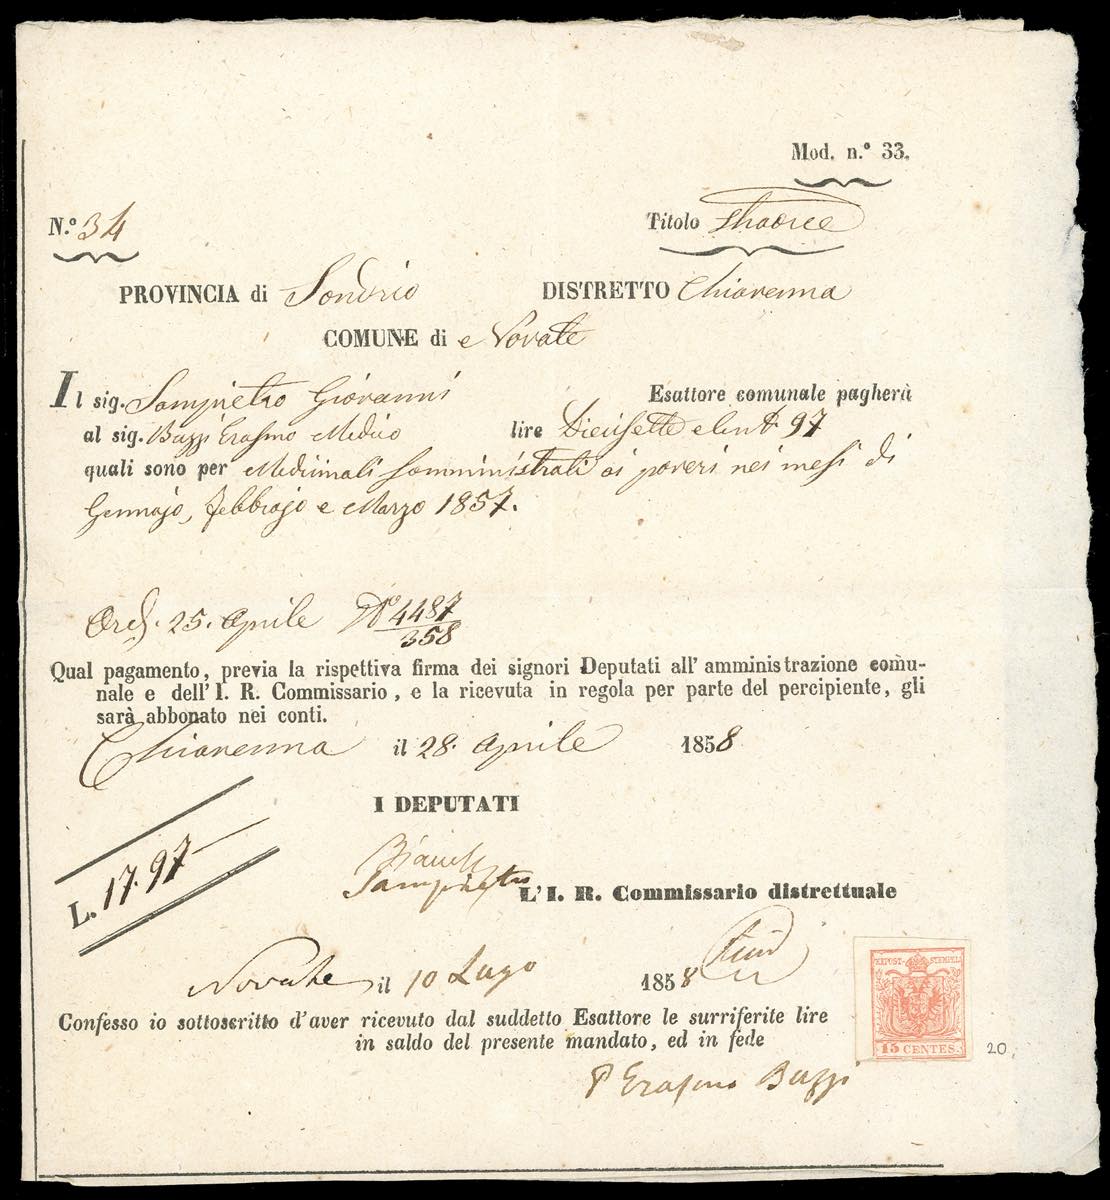 Mod. n.º 33.
N.º 34
Titolo
PROVINCIA di Sondrio DISTRETTO Chiavenna
COMUNE di Novate
Il sig. Sampietro Giovanni Esattore comunale pagherà
al sig. Buzzi Erasmo Medico lire Diecisette e Cent. 97
quali sono per Medicinali somministrati ai poveri nei mesi di
Gennajo, Febbrajo e Marzo 1857.
Ord. 25. Aprile Nº 4487/358
Qual pagamento, previa la rispettiva firma dei signori Deputati all' amministrazione comu-
nale e dell' I. R. Commissario, e la ricevuta in regola per parte del percipiente, gli
sarà abbonato nei conti.
Chiavenna il 28. Aprile 1858
I DEPUTATI
L. 17. 97
Sampietro
L' I. R. Commissario distrettuale
Novate il 10 Lugo 1858
Confesso io sottoscritto d'aver ricevuto dal suddetto Esattore le surriferite lire
in saldo del presente mandato, ed in fede
Erasmo Buzzi
KKPOST-STEMPEL
15 CENTES.
20.